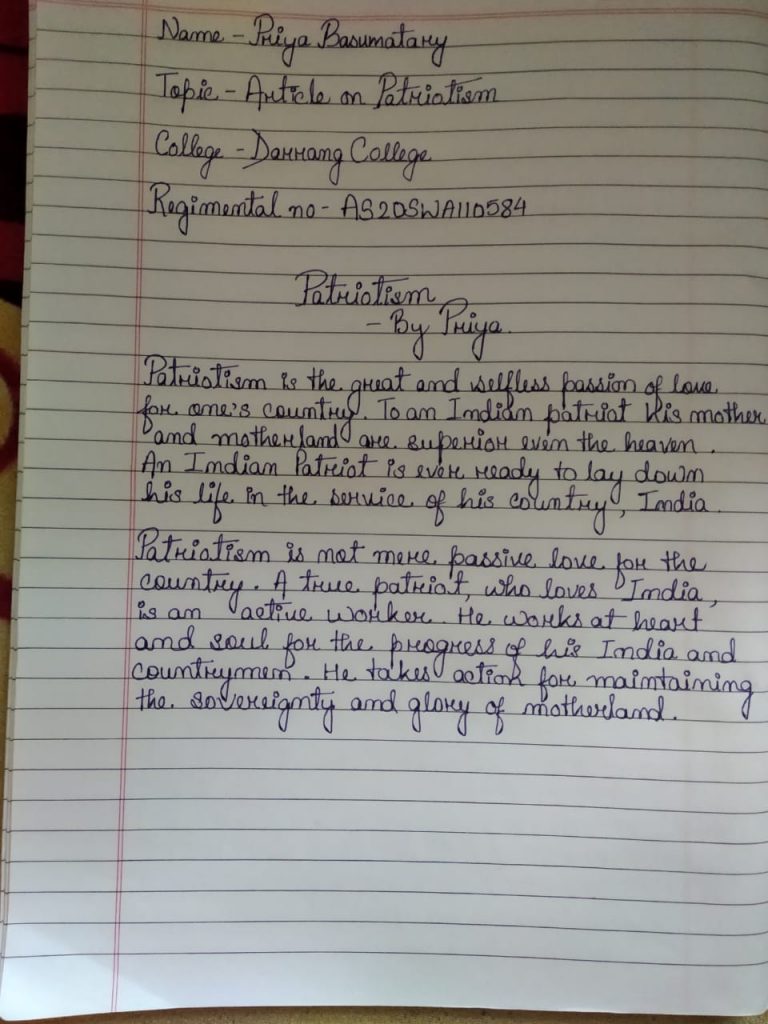 Name - Priya Basumatary
Topic - Article on Patriotism
College - Darrang College
Regimental no - AS20SWA110584
Patriotism
- By Priya.
Patriotism is the great and selfless passion of love
for one's country. To an Indian patriot his mother
and motherland are superior even the heaven.
An Indian Patriot is ever ready to lay down
his life in the service of his country, India.
Patriotism is not mere passive love for the
country. A true patriot, who loves India,
is an active worker. He works at heart
and soul for the progress of his India and
countrymen. He takes action for maintaining
the sovereignty and glory of motherland.